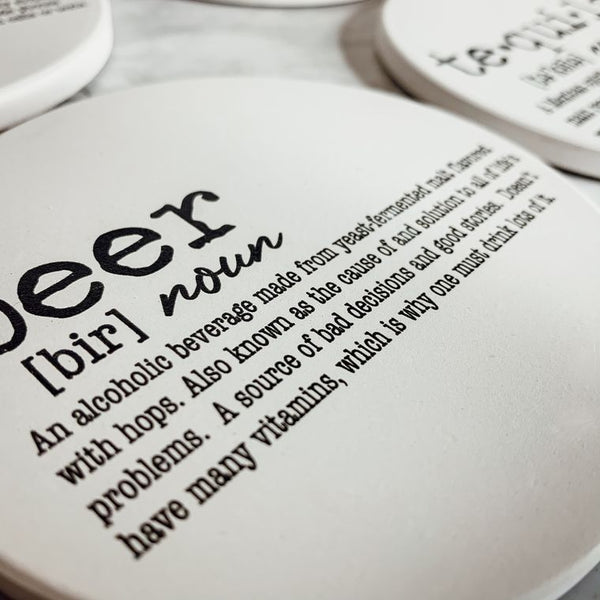 te•qui•
beer
[bir] noun
An alcoholic beverage made from yeast-fermented malt flavored
with hops. Also known as the cause of and solution to all of life's
problems. A source of bad decisions and good stories. Doesn't
have many vitamins, which is why one must drink lots of it.